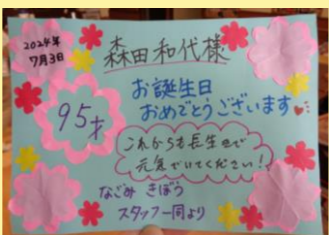 2024年
7月3日
森田和代様
お誕生日
おめでとうございます
95才
これからも長生きで
元気でいてください!
なごみ きぼう
スタッフ一同より